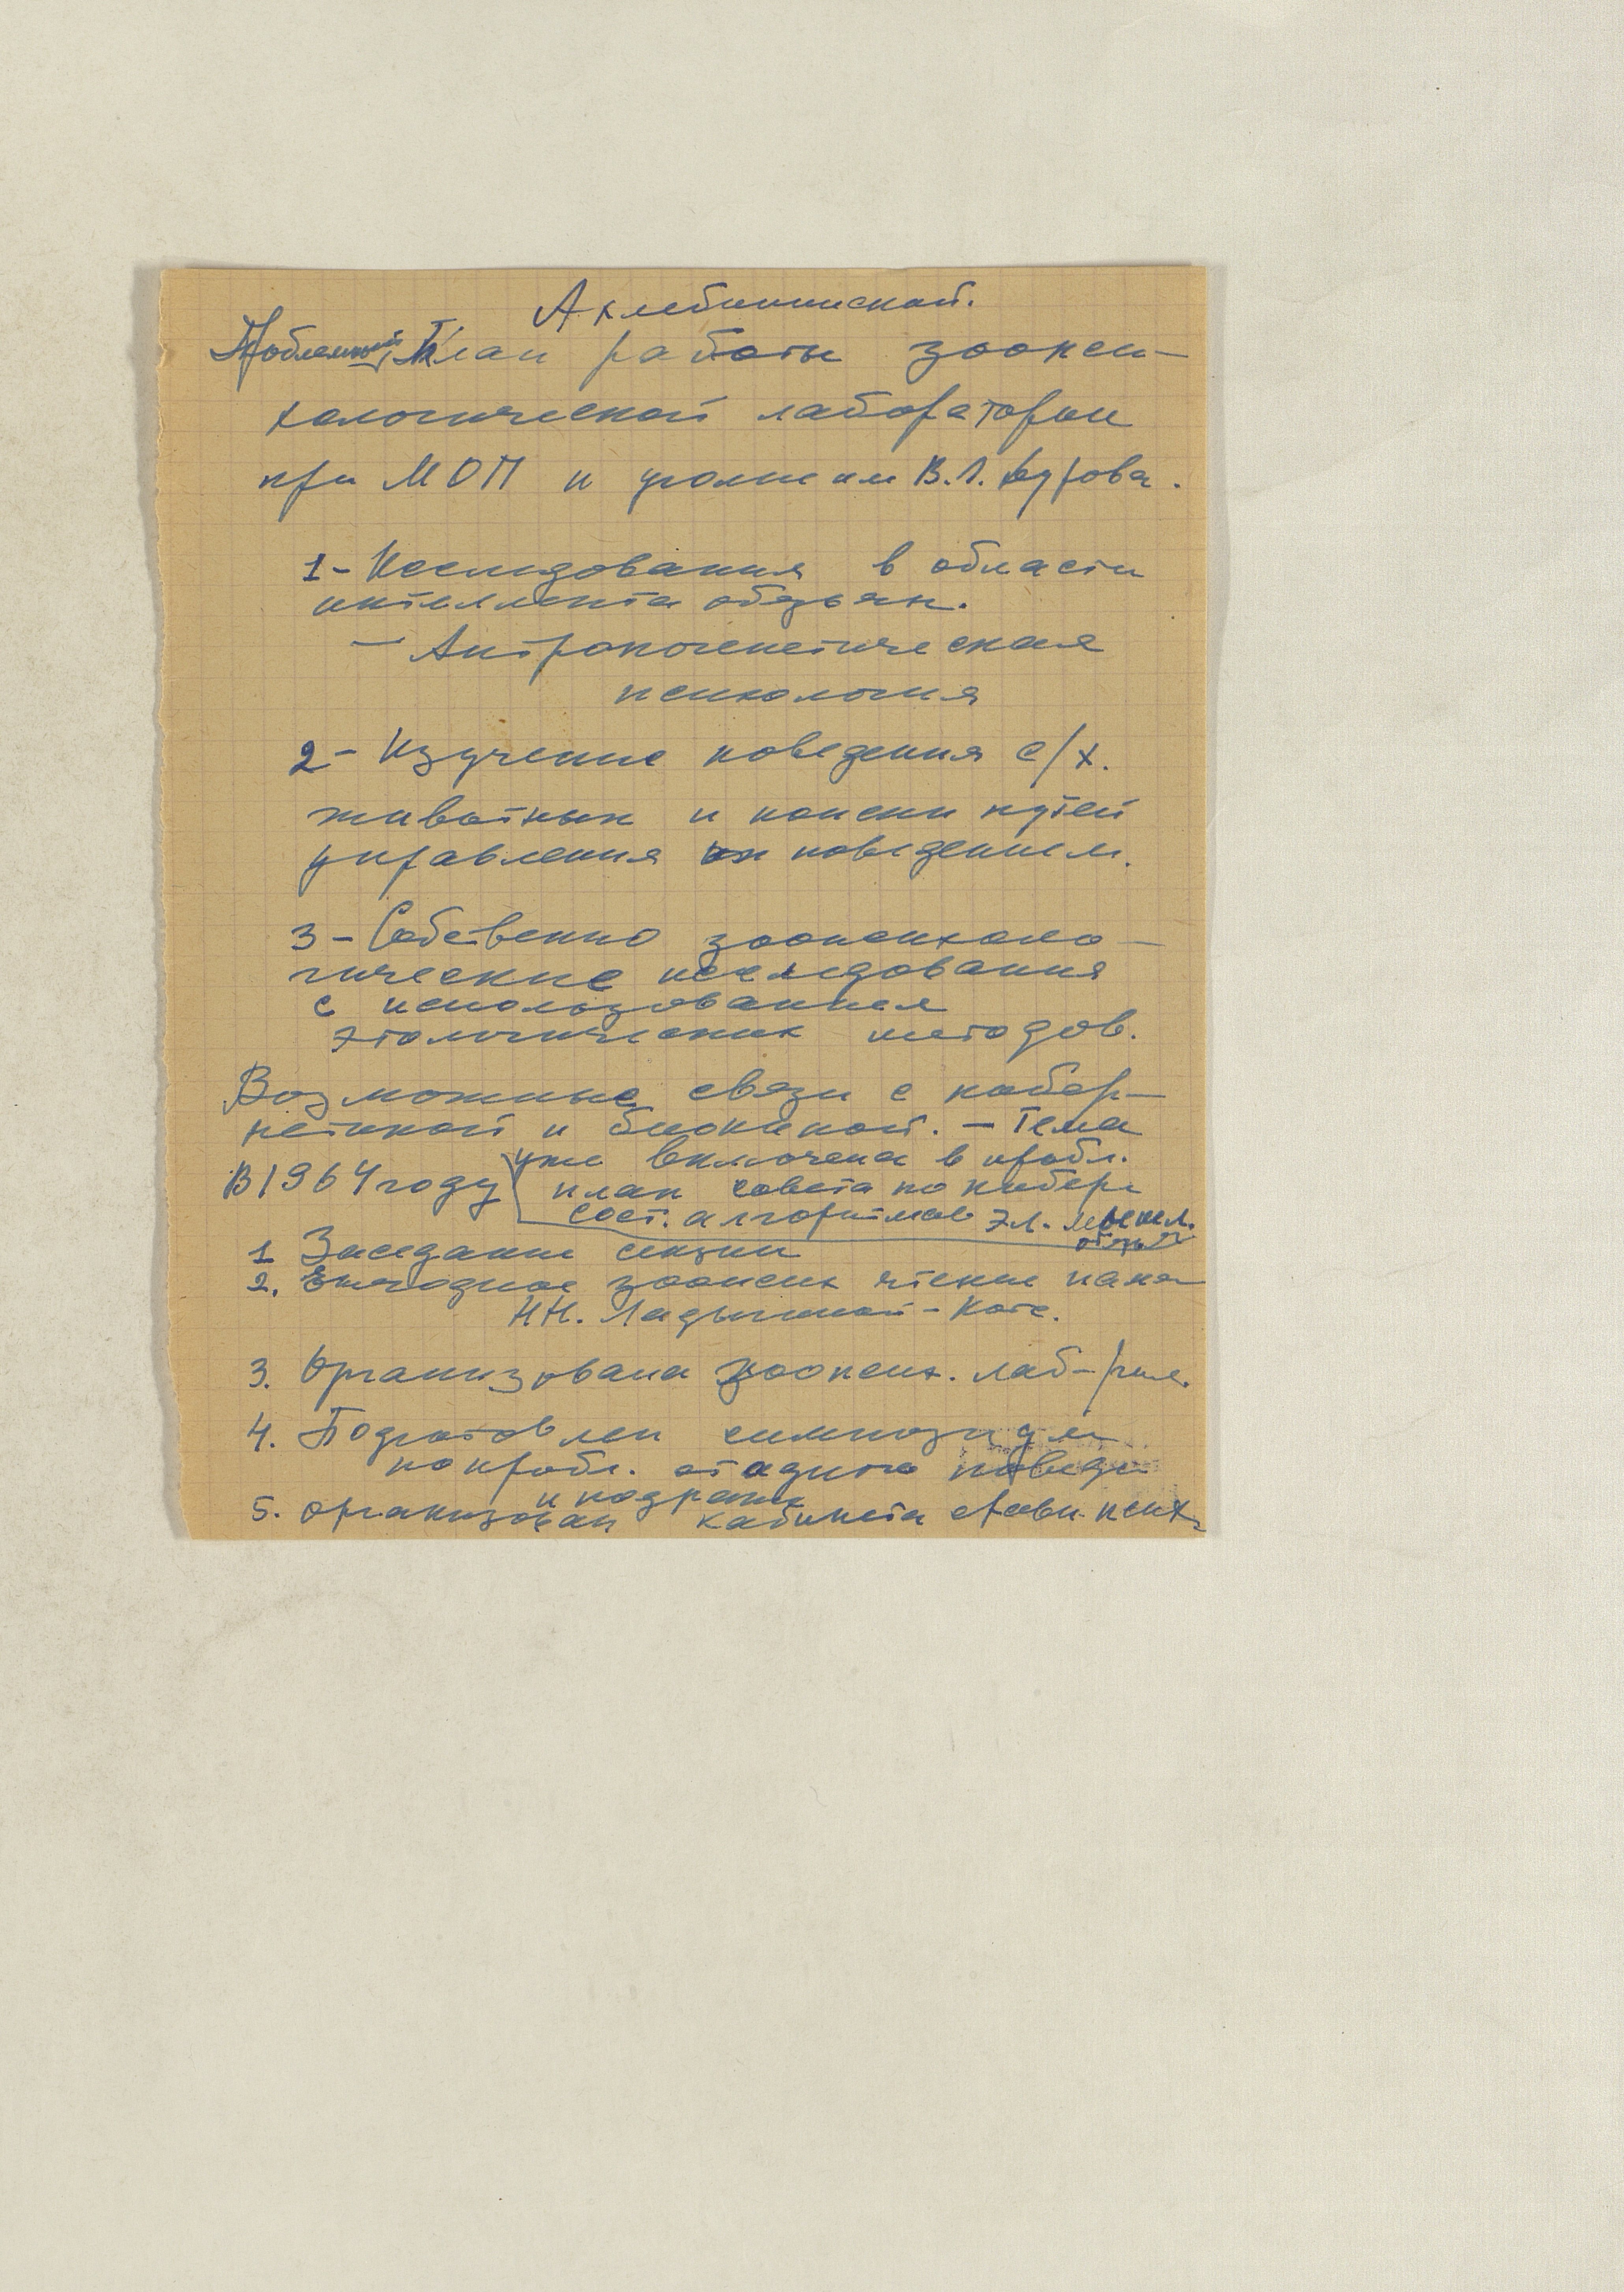 Ахлебининской.
Проблемный План работы зоопси-
хологической лаборатории
при МОП и уголке им В.Л. Дурова.
1 - Исследования в области
интеллекта обезьян.
- Антропогенетическая
психология
2 - Изучение поведения с/х.
животных и поиски путей
управления их поведением.
3 - Собственно зоопсихоло-
гические исследования
с использованием
этологических методов.
Возможные связи с кибер-
нетикой и бионикой. - Тема
уже включена в пробл.
В 1964 году план совета по кибер
сост. алгоритмов эл. мышл.
обезьян
1 Заседание секции
2. Ежегодное зоопсих чтение памя
Н.Н. Ладыгиной-Котс.
3. Организована зоопсих. лаб-рия.
4. Подготовлен симпозиум
по пробл. стадного поведе
и подраж
5. Организован кабинета сравн. псих.